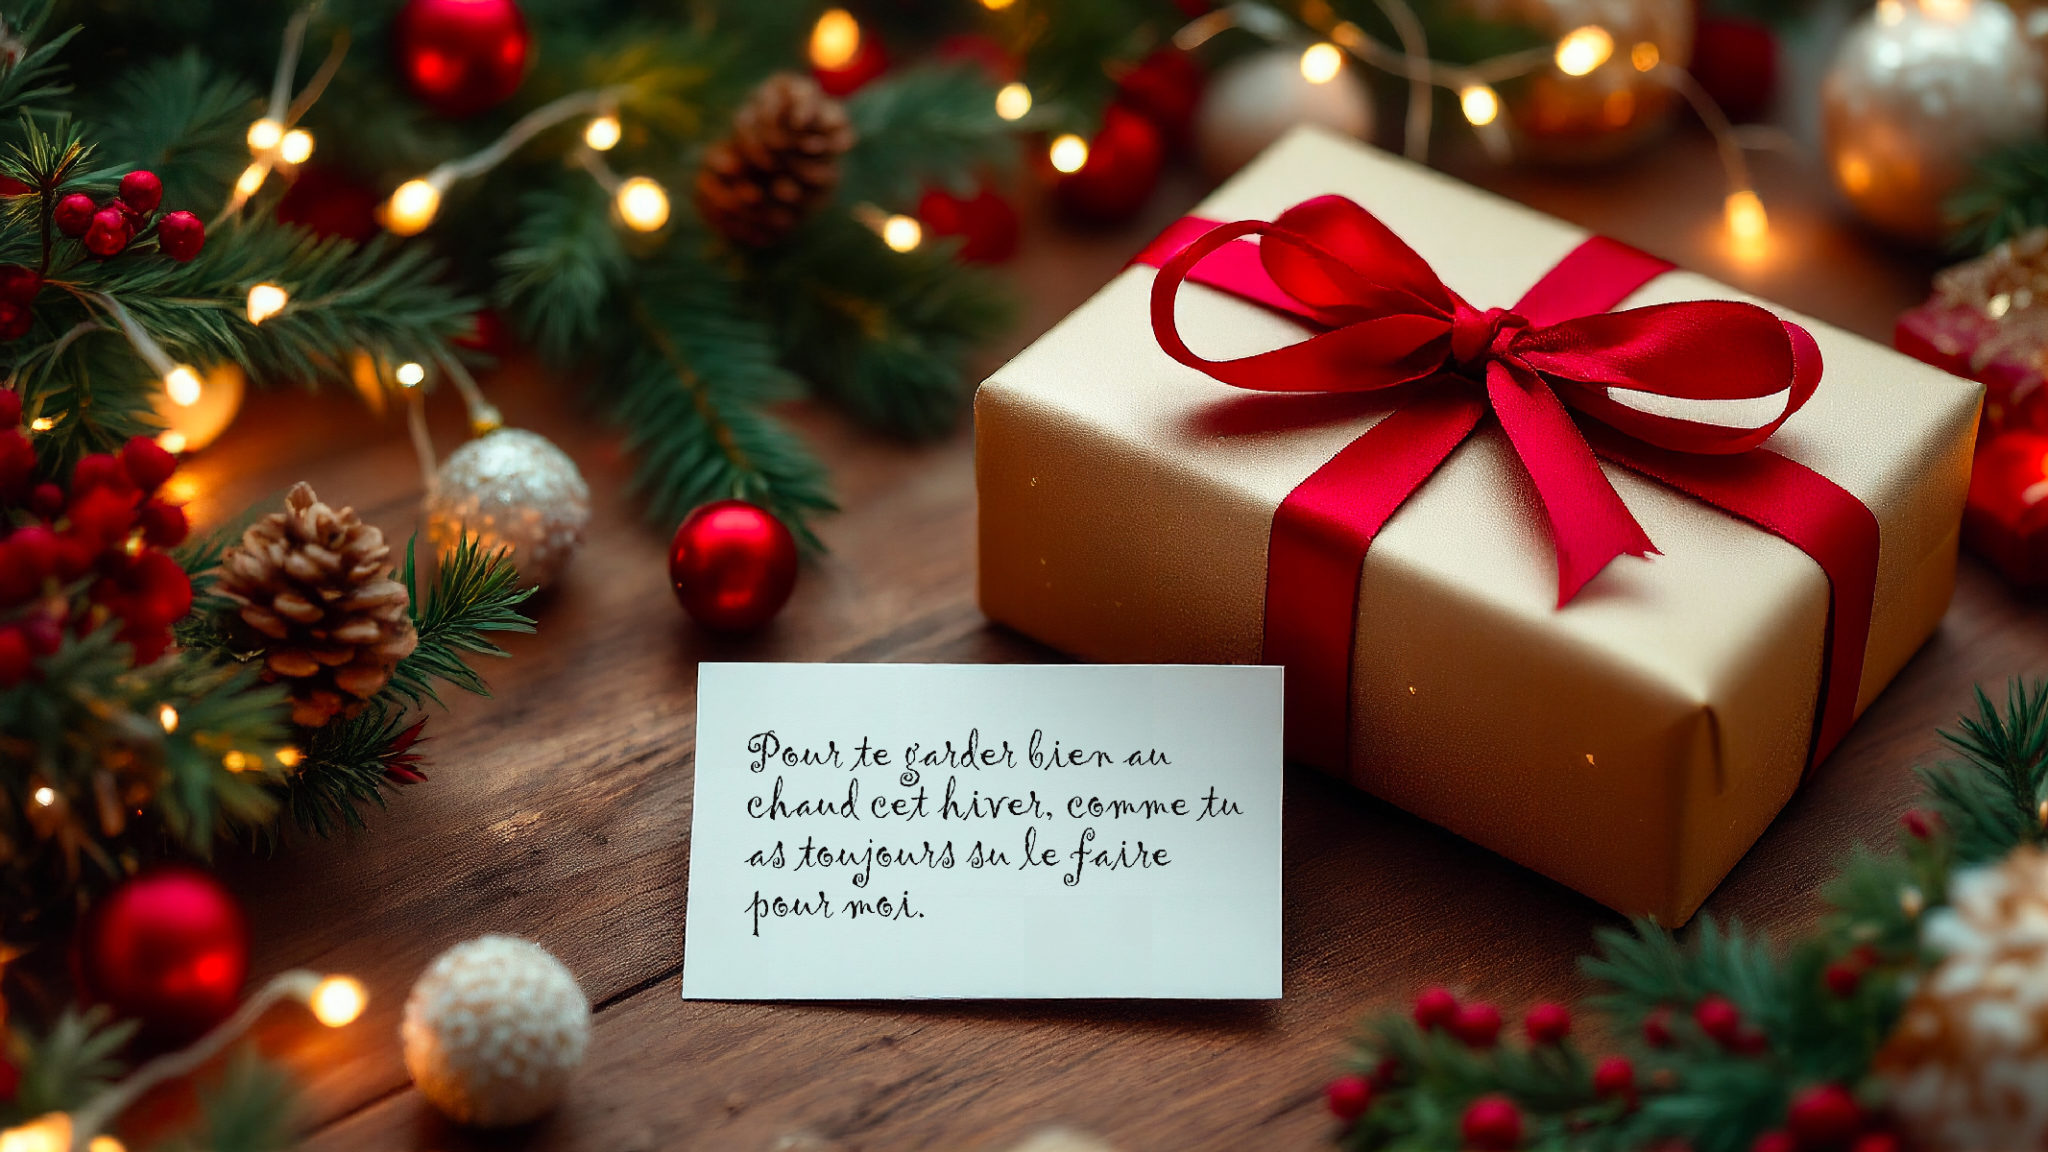 Pour te garder bien au
chaud cet hiver, comme tu
as toujours su le faire
pour moi.